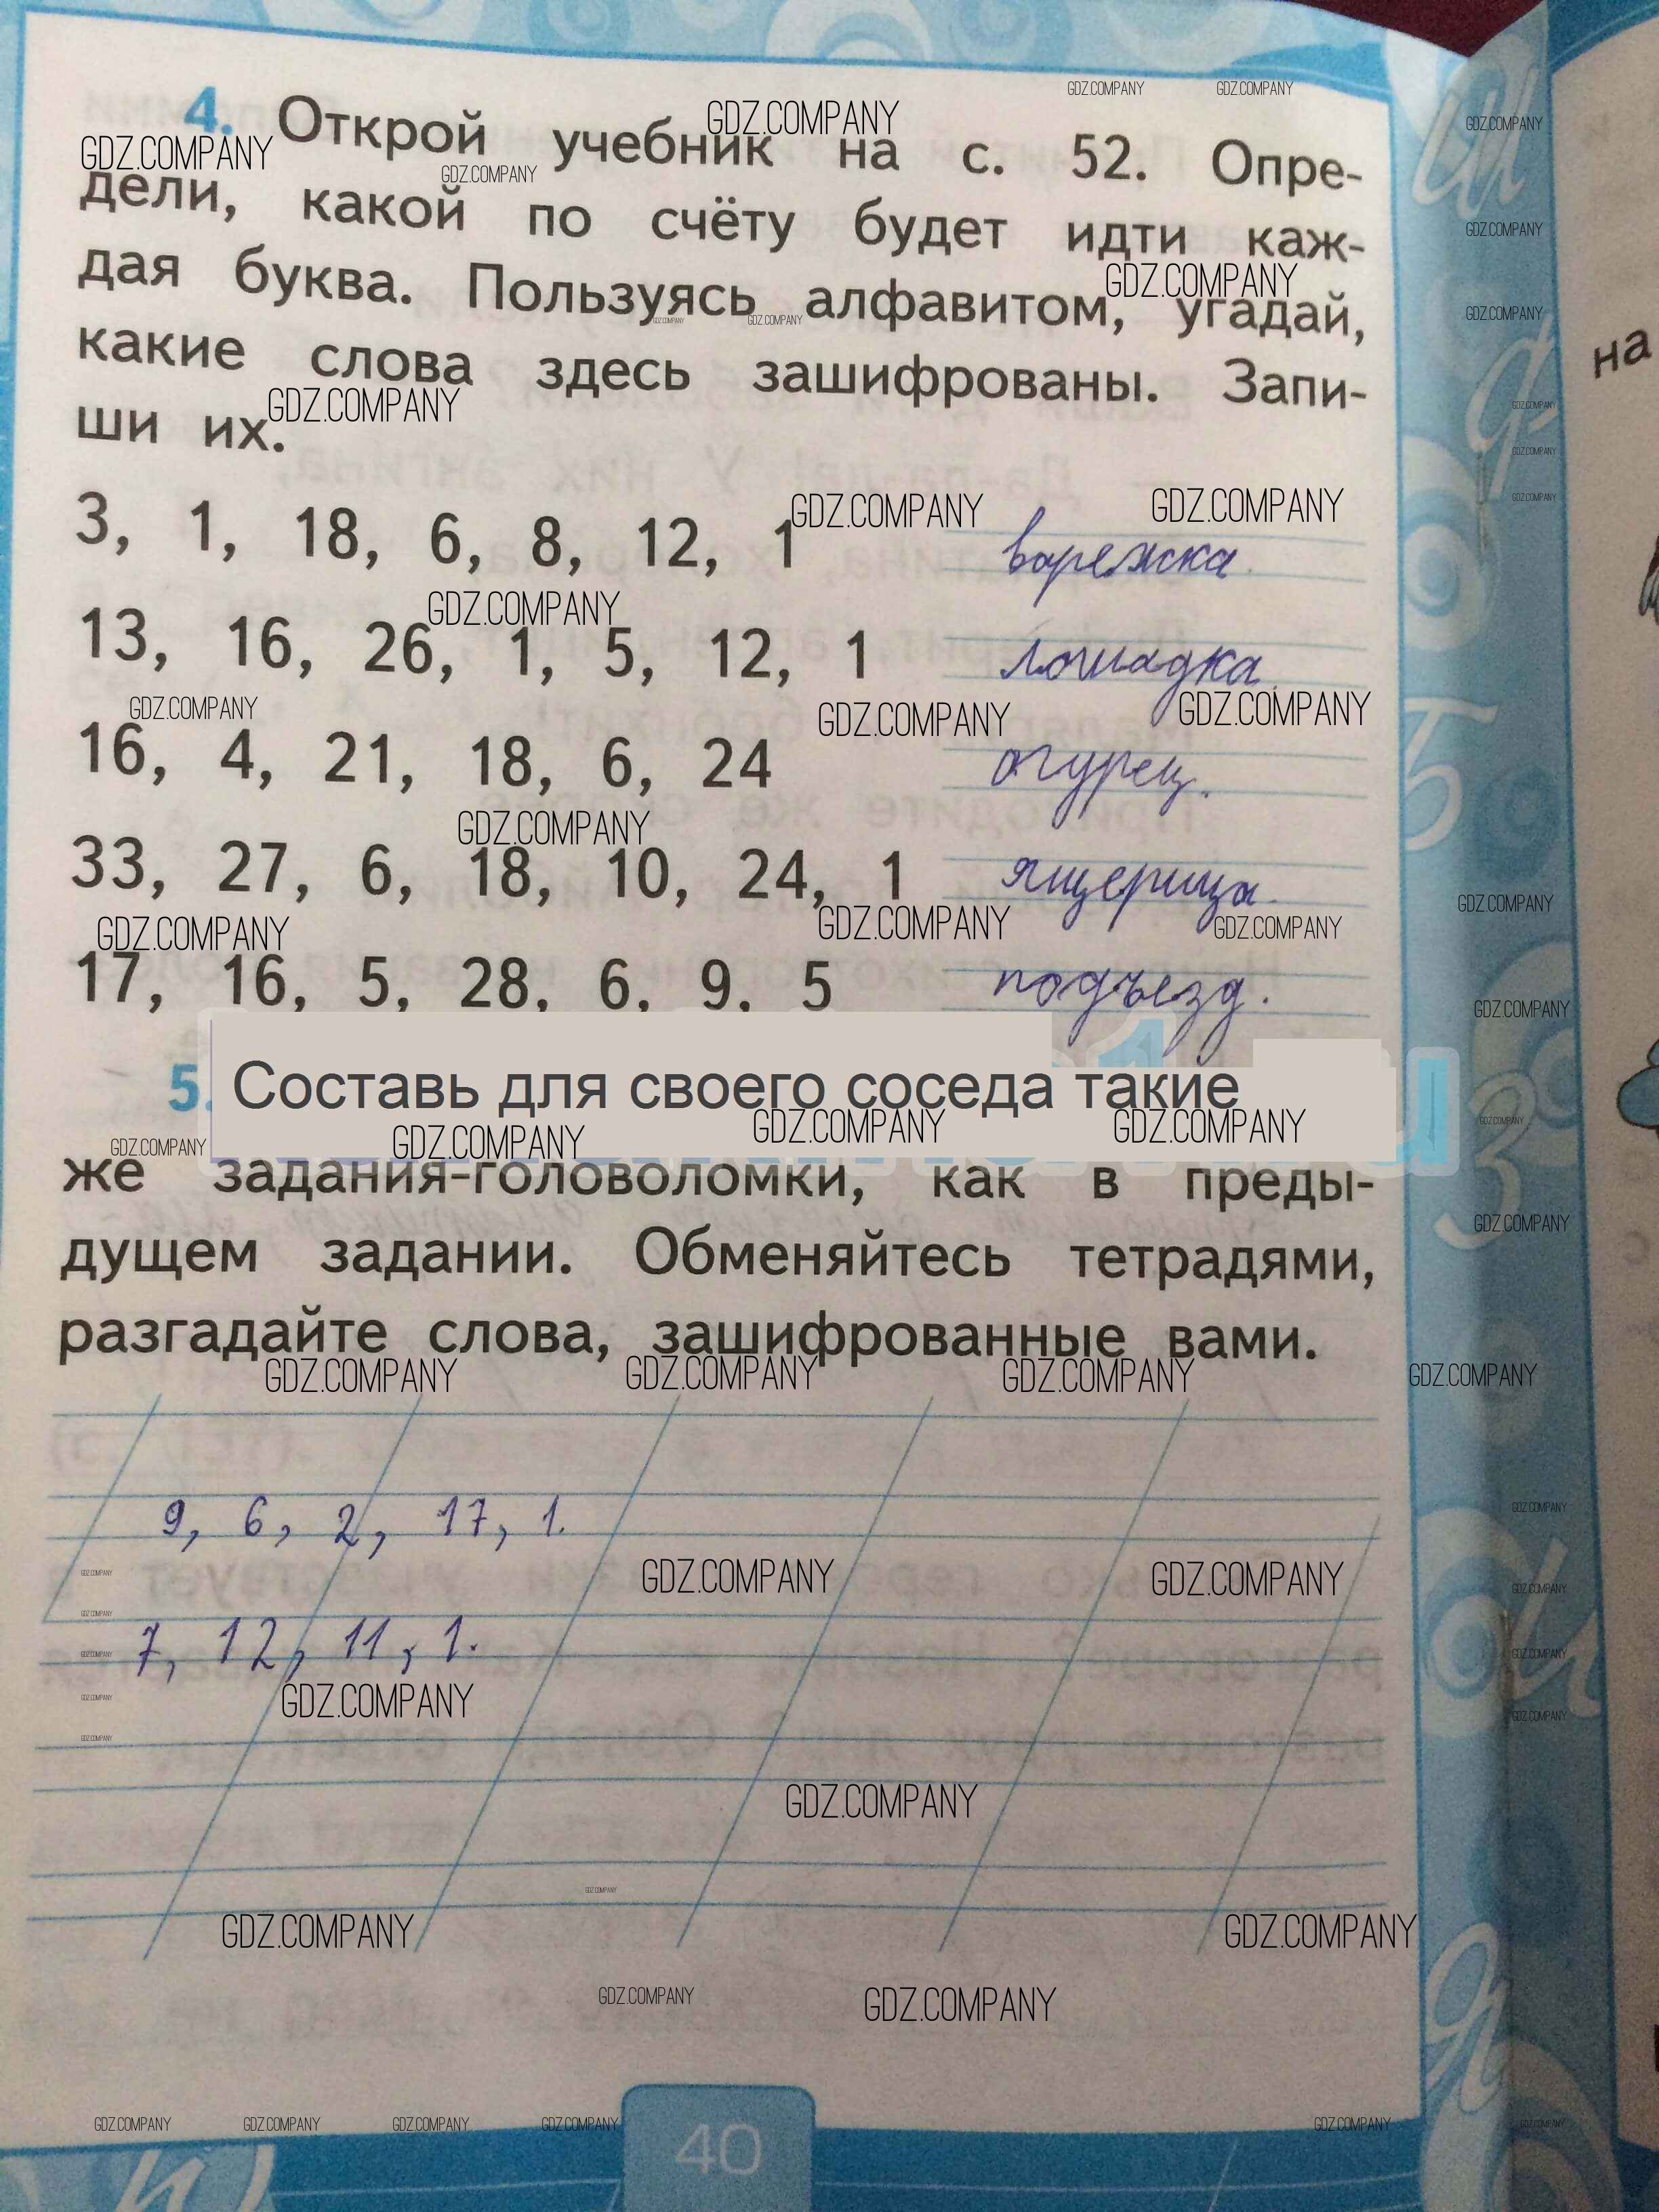 4. Открой учебник на с. 52. Опре-
дели, какой по счёту будет идти каж-
дая буква. Пользуясь алфавитом, угадай,
какие слова здесь зашифрованы. Запи-
ши их.
3, 1, 18, 6, 8, 12, 1 варежка
13, 16, 26, 1, 5, 12, 1 лошадка
16, 4, 21, 18, 6, 24 огурец.
33, 27, 6, 18, 10, 24, 1 ящерица
17, 16, 5, 28, 6, 9, 5 подъезд.
5. Составь для своего соседа такие
же задания-головоломки, как в преды-
дущем задании. Обменяйтесь тетрадями,
разгадайте слова, зашифрованные вами.
9, 6, 2, 17, 1.
7, 12, 11, 1.
40
на
GDZ.COMPANY